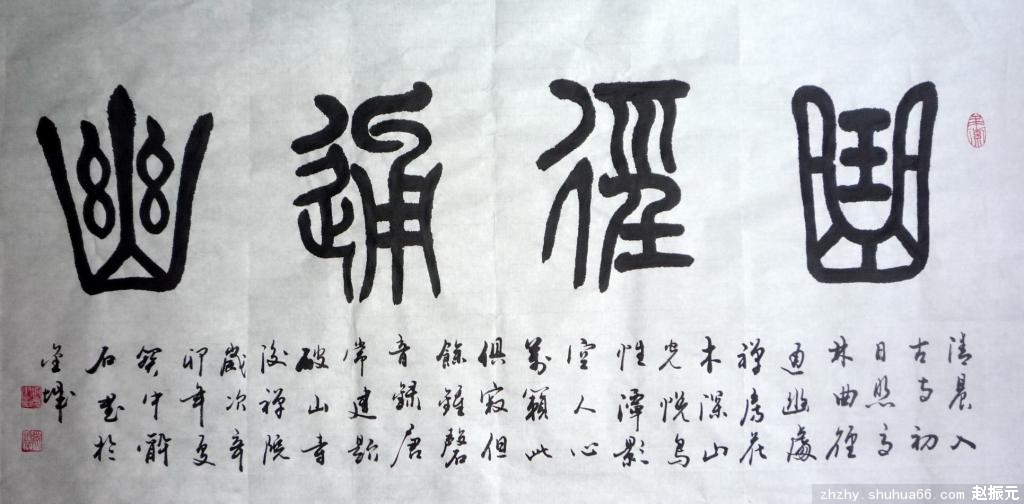 曲徑通幽
清晨入
古寺初
日照高
林曲徑
通幽處
禪房花
木深山
光悦鳥
性潭影
空人心
萬籟此
俱寂但
餘鐘磬
音録唐
常建題
破山寺
後禪院
歲次辛
卯年夏
石書於
金城
zhzhy.shuhua66.com 赵振元